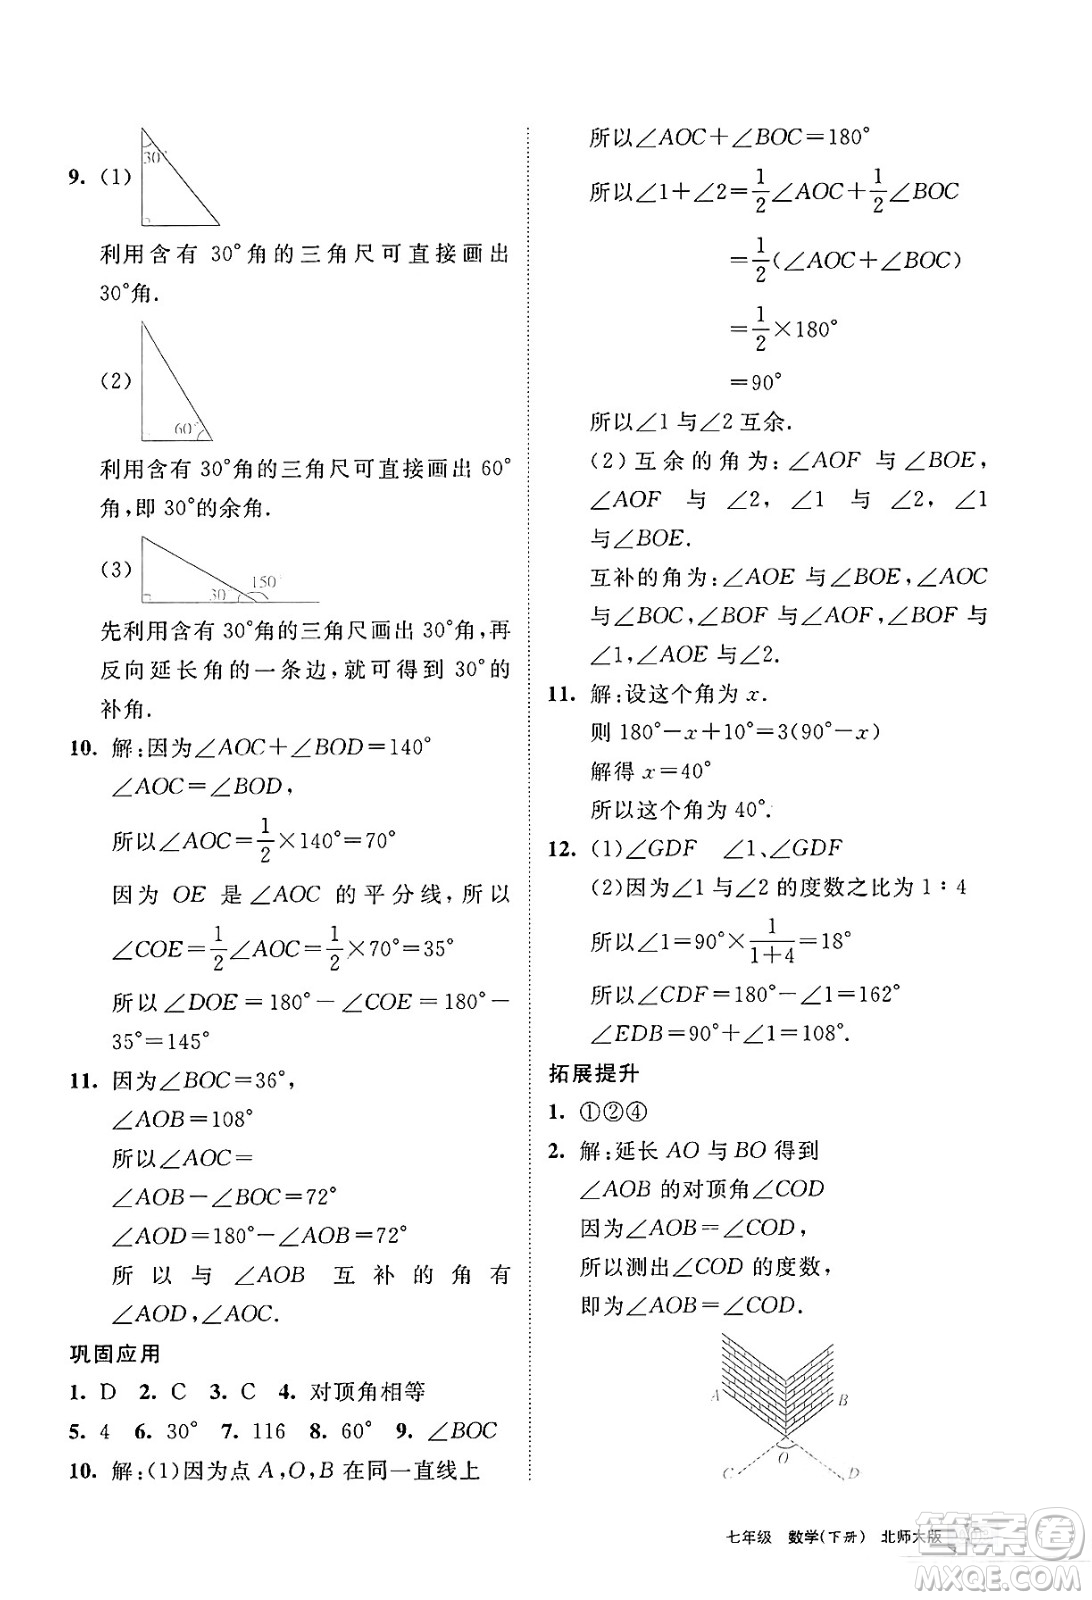 30°
9. (1)
利用含有 30°角的三角尺可直接画出
30°角.
(2)
60°
利用含有 30°角的三角尺可直接画出 60°
角,即 30°的余角.
(3)
30 150°
先利用含有 30°角的三角尺画出 30°角,再
反向延长角的一条边,就可得到 30°的
补角.
10. 解:因为∠AOC+∠BOD=140°
∠AOC=∠BOD,
所以∠AOC=1/2×140°=70°
因为 OE 是∠AOC 的平分线,所以
∠COE=1/2∠AOC=1/2×70°=35°
所以∠DOE=180°-∠COE=180°-
35°=145°
11. 因为∠BOC=36°,
∠AOB=108°
所以∠AOC=
∠AOB-∠BOC=72°
∠AOD=180°-∠AOB=72°
所以与∠AOB 互补的角有
∠AOD,∠AOC.
巩固应用
1. D 2. C 3. C 4. 对顶角相等
5. 4 6. 30° 7. 116 8. 60° 9. ∠BOC
10. 解:(1)因为点 A,O,B 在同一直线上
所以∠AOC+∠BOC=180°
所以∠1+∠2=1/2∠AOC+1/2∠BOC
=1/2(∠AOC+∠BOC)
=1/2×180°
=90°
所以∠1与∠2互余.
(2)互余的角为:∠AOF 与∠BOE,
∠AOF 与∠2,∠1 与∠2,∠1
与∠BOE.
互补的角为:∠AOE 与∠BOE,∠AOC
与∠BOC,∠BOF 与∠AOF,∠BOF 与
∠1,∠AOE 与∠2.
11. 解:设这个角为 x.
则 180°-x+10°=3(90°-x)
解得 x=40°
所以这个角为 40°.
12. (1)∠GDF ∠1、∠GDF
(2)因为∠1与∠2的度数之比为 1:4
所以∠1=90°×1/(1+4)=18°
所以∠CDF=180°-∠1=162°
∠EDB=90°+∠1=108°.
拓展提升
1. ①②④
2. 解:延长 AO 与 BO 得到
∠AOB 的对顶角∠COD
因为∠AOB=∠COD,
所以测出∠COD 的度数,
即为∠AOB=∠COD.
A B
C O D
七年级 数学(下册) 北师大版
答案圈
MXQE.COM